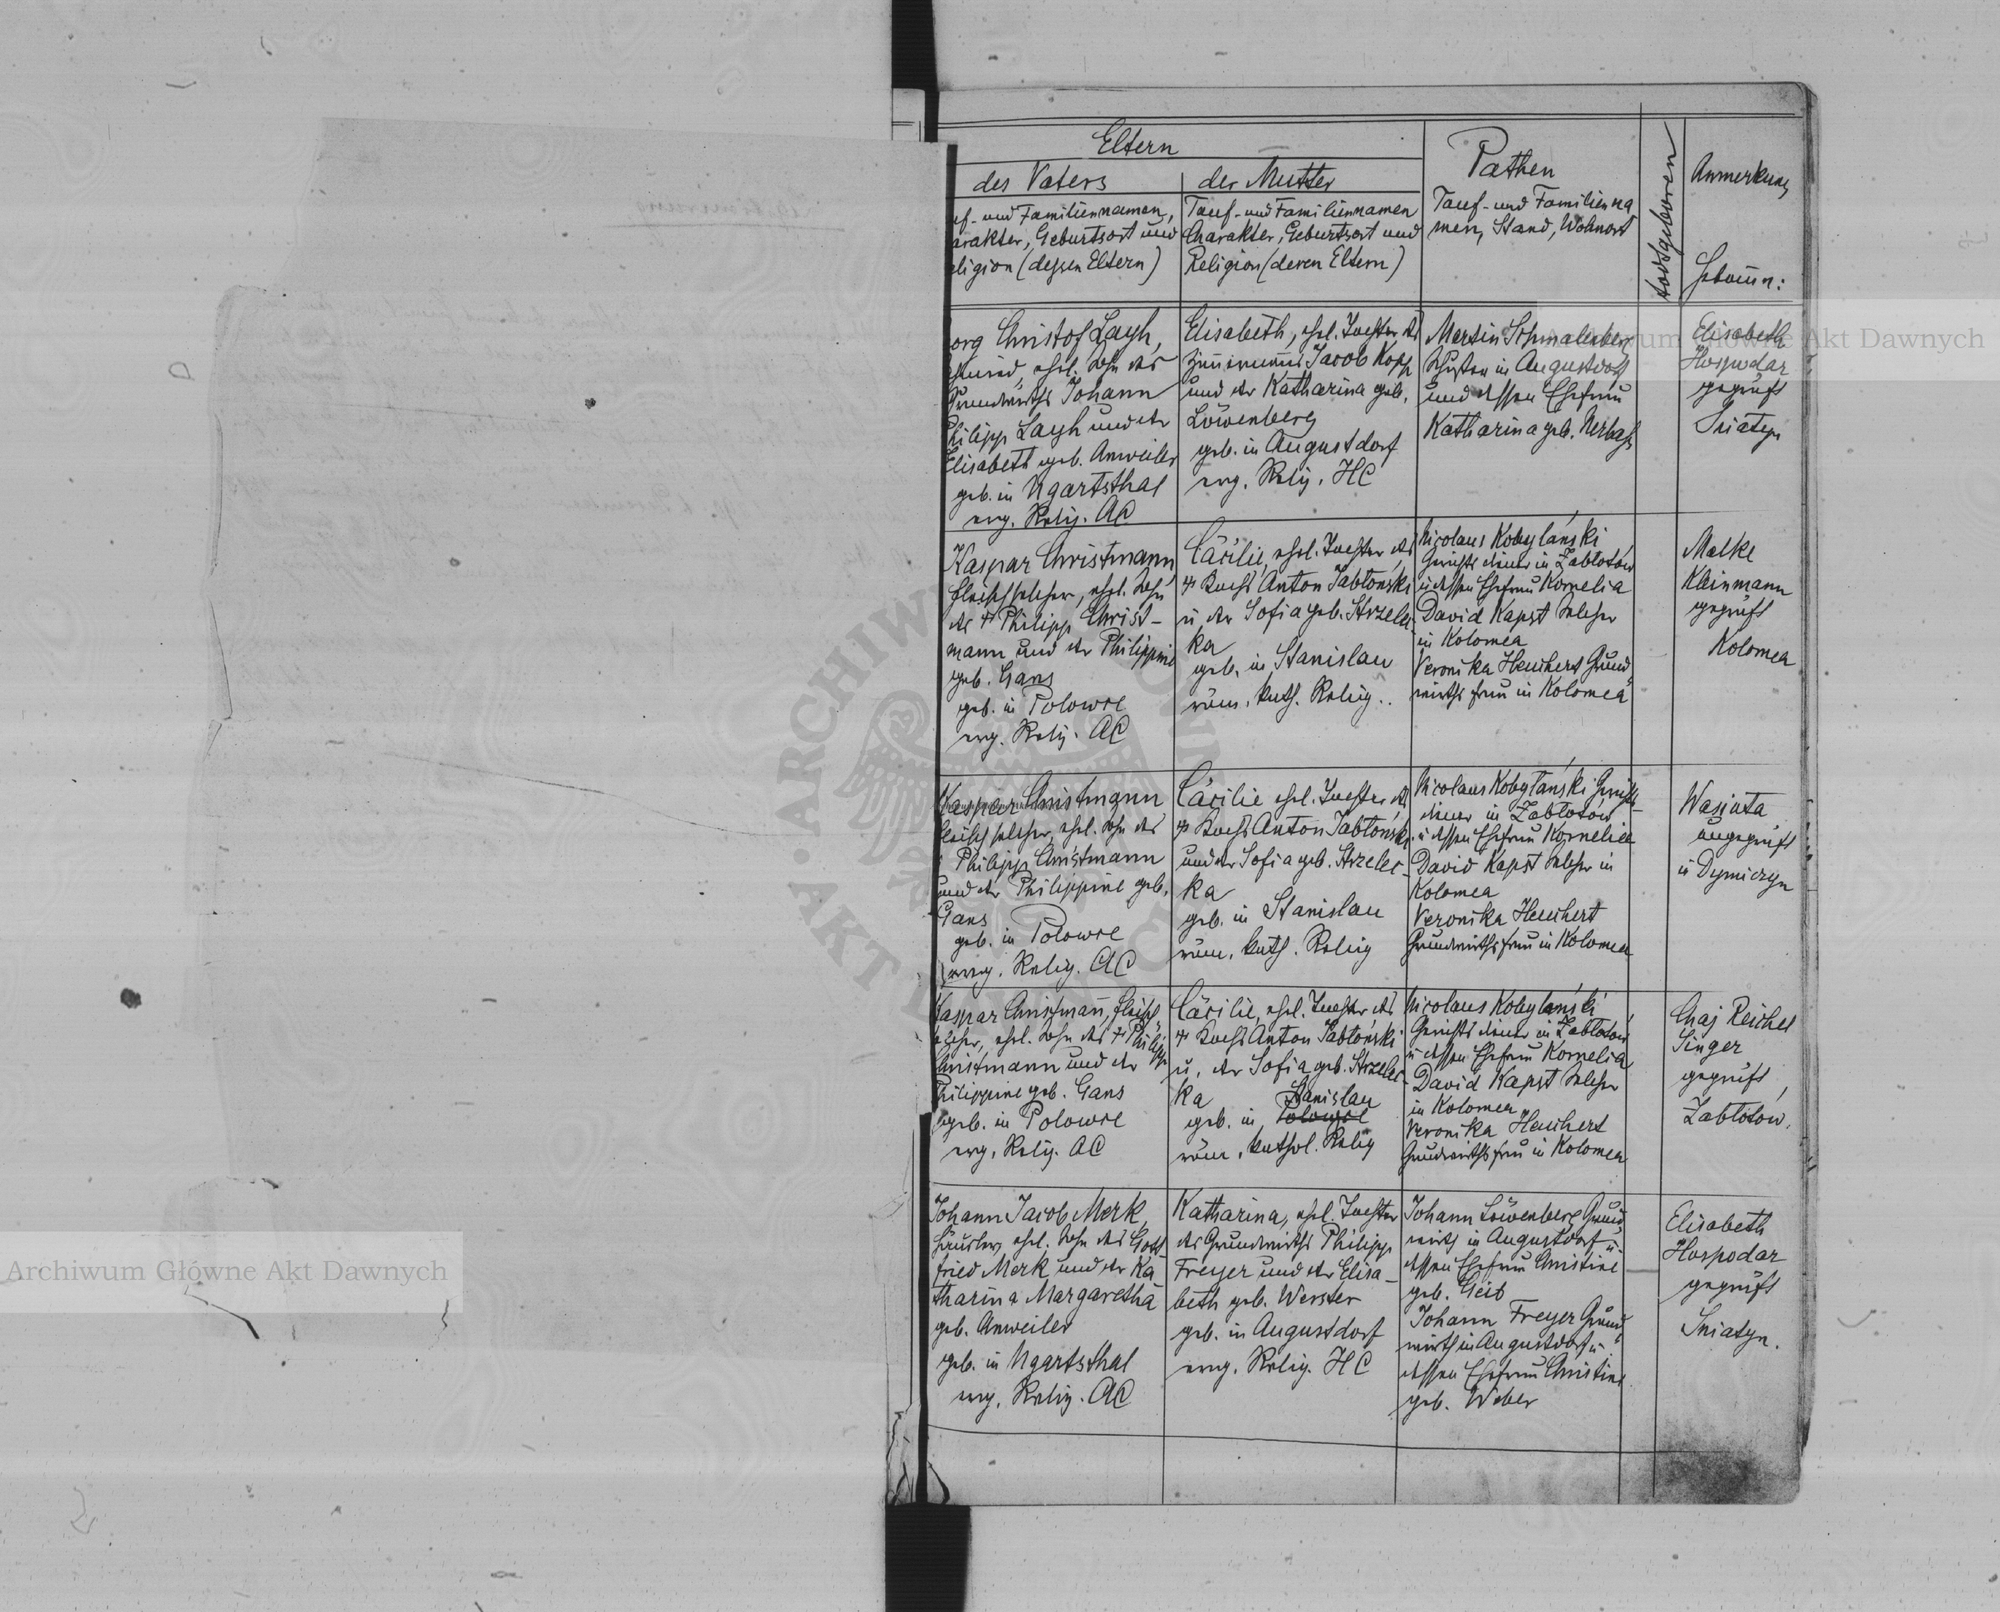 Eltern
des Vaters
der Mutter
Pathen
todtgeboren
Anmerkung
uf- und Familiennamen,
arakter, Geburtsort und
eligion (dessen Eltern)
Tauf- und Familiennamen
Charakter, Geburtsort und
Religion (deren Eltern)
Tauf- und Familienna
men, Stand, Wohnort
Hebam̅n:
org Christof Layh,
ehel. Sohn des
Grundwirths Johann
Philipp Layh und der
Elisabeth geb. Anweiler
geb. in Ugartsthal
evg. Relig. AC
Elisabeth, ehel. Tochter des
Jacob Kopp
und der Katharina geb.
Löwenberg
geb. in Augustdorf
evg. Relig. HC
Martin Schmalenberg
in Augustdorf
und dessen Ehefrau
Katharina geb. Nerbaß
Elisabeth
Hospodar
geprüft
Sniatyn
Kaspar Christmann
Fleischselcher, ehel. Sohn
des † Philipp Christ-
mann und der Philippine
geb. Gans
geb. in Polowce
evg. Relig. AC
Cäcilie, ehel. Tochter des
† Kochs Anton Jabłoński
u. der Sofia geb. Strzelec-
ka
geb. in Stanislau
röm. kath. Relig.
Nicolaus Kobylański
Gerichtsdiener in Zabłotów
u dessen Ehefrau Kornelia
David Kapst Selcher
in Kolomea
Veronika Heuchert Grund
wirthsfrau in Kolomea
Malke
Kleinmann
geprüft
Kolomea
Kaspar Christmann
Fleischselcher, ehel. Sohn des
Philipp Christmann
und der Philippine geb.
Gans
geb. in Polowce
evg. Relig. AC
Cäcilie ehel. Tochter des
† Kochs Anton Jabłoński
und der Sofia geb. Strzelec-
ka
geb. in Stanislau
röm. kath. Relig
Nicolaus Kobylański Gerichts-
diener in Zabłotów
u dessen Ehefrau Kornelia
David Kapst Selcher in
Kolomea
Veronika Heuchert
Grundwirthsfrau in Kolomea
Wasjuta
ungeprüft
in Dymiczyn
Kaspar Christman̅, Fleisch
selcher, ehel. Sohn des † Philipp
Christmann und der
Philippine geb. Gans
geb. in Polowce
evg. Relig. AC
Cäcilie, ehel. Tochter des
† Kochs Anton Jabłoński
u. der Sofia geb. Strzelec-
ka
Stanislau
geb. in Polowce
röm. kathol. Relig
Nicolaus Kobylański
Gerichtsdiener in Zabłotów
u dessen Ehefrau Kornelia
David Kapst Selcher
in Kolomea
Veronika Heuchert
Grundwirthsfrau in Kolomea
Chaj Reichel
Singer
geprüft,
Zabłotów.
Johann Jacob Merk,
Häusler, ehel. Sohn des Gott
fried Merk und der Ka
tharina Margaretha
geb. Anweiler
geb. in Ugartsthal
evg. Relig. AC
Katharina, ehel. Tochter
des Grundwirths Philipp
Freyer und der Elisa-
beth geb. Werster
geb. in Augustdorf
evg. Relig. HC
Johann Löwenberg Grund
wirth in Augustdorf u.
dessen Ehefrau Christine
geb. Geib
Johann Freyer Grund
wirth in Augustdorf u
dessen Ehefrau Christine
geb. Weber
Elisabeth
Hospodar
geprüft
Sniatyn.
Archiwum Główne Akt Dawnych
Archiwum Główne Akt Dawnych
ARCHIWUM GŁÓWNE AKT DAWNYCH